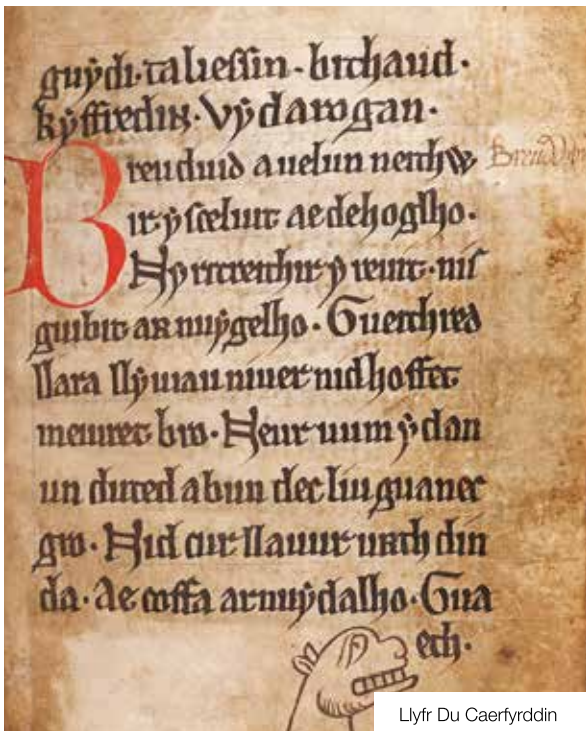 guẏdi·talieſſin·bithaud·
kẏffredin·Vẏ darogan·
Breuduid a uelun neithwir
ir ẏ ſceluir ae dehoglho·
Nẏ ritreithir ẏ reuit·niſ
guibit ar nuẏgelho·Gueithred
llara llẏuiau niuer nid hoffet
meuret bro·Neur uum ẏ dan
un duted a bun dec liu guanec
gro·Nid cur llauur urth din
da·Ae coffa ar nuẏ dalho·Gua
eth·
Llyfr Du Caerfyrddin